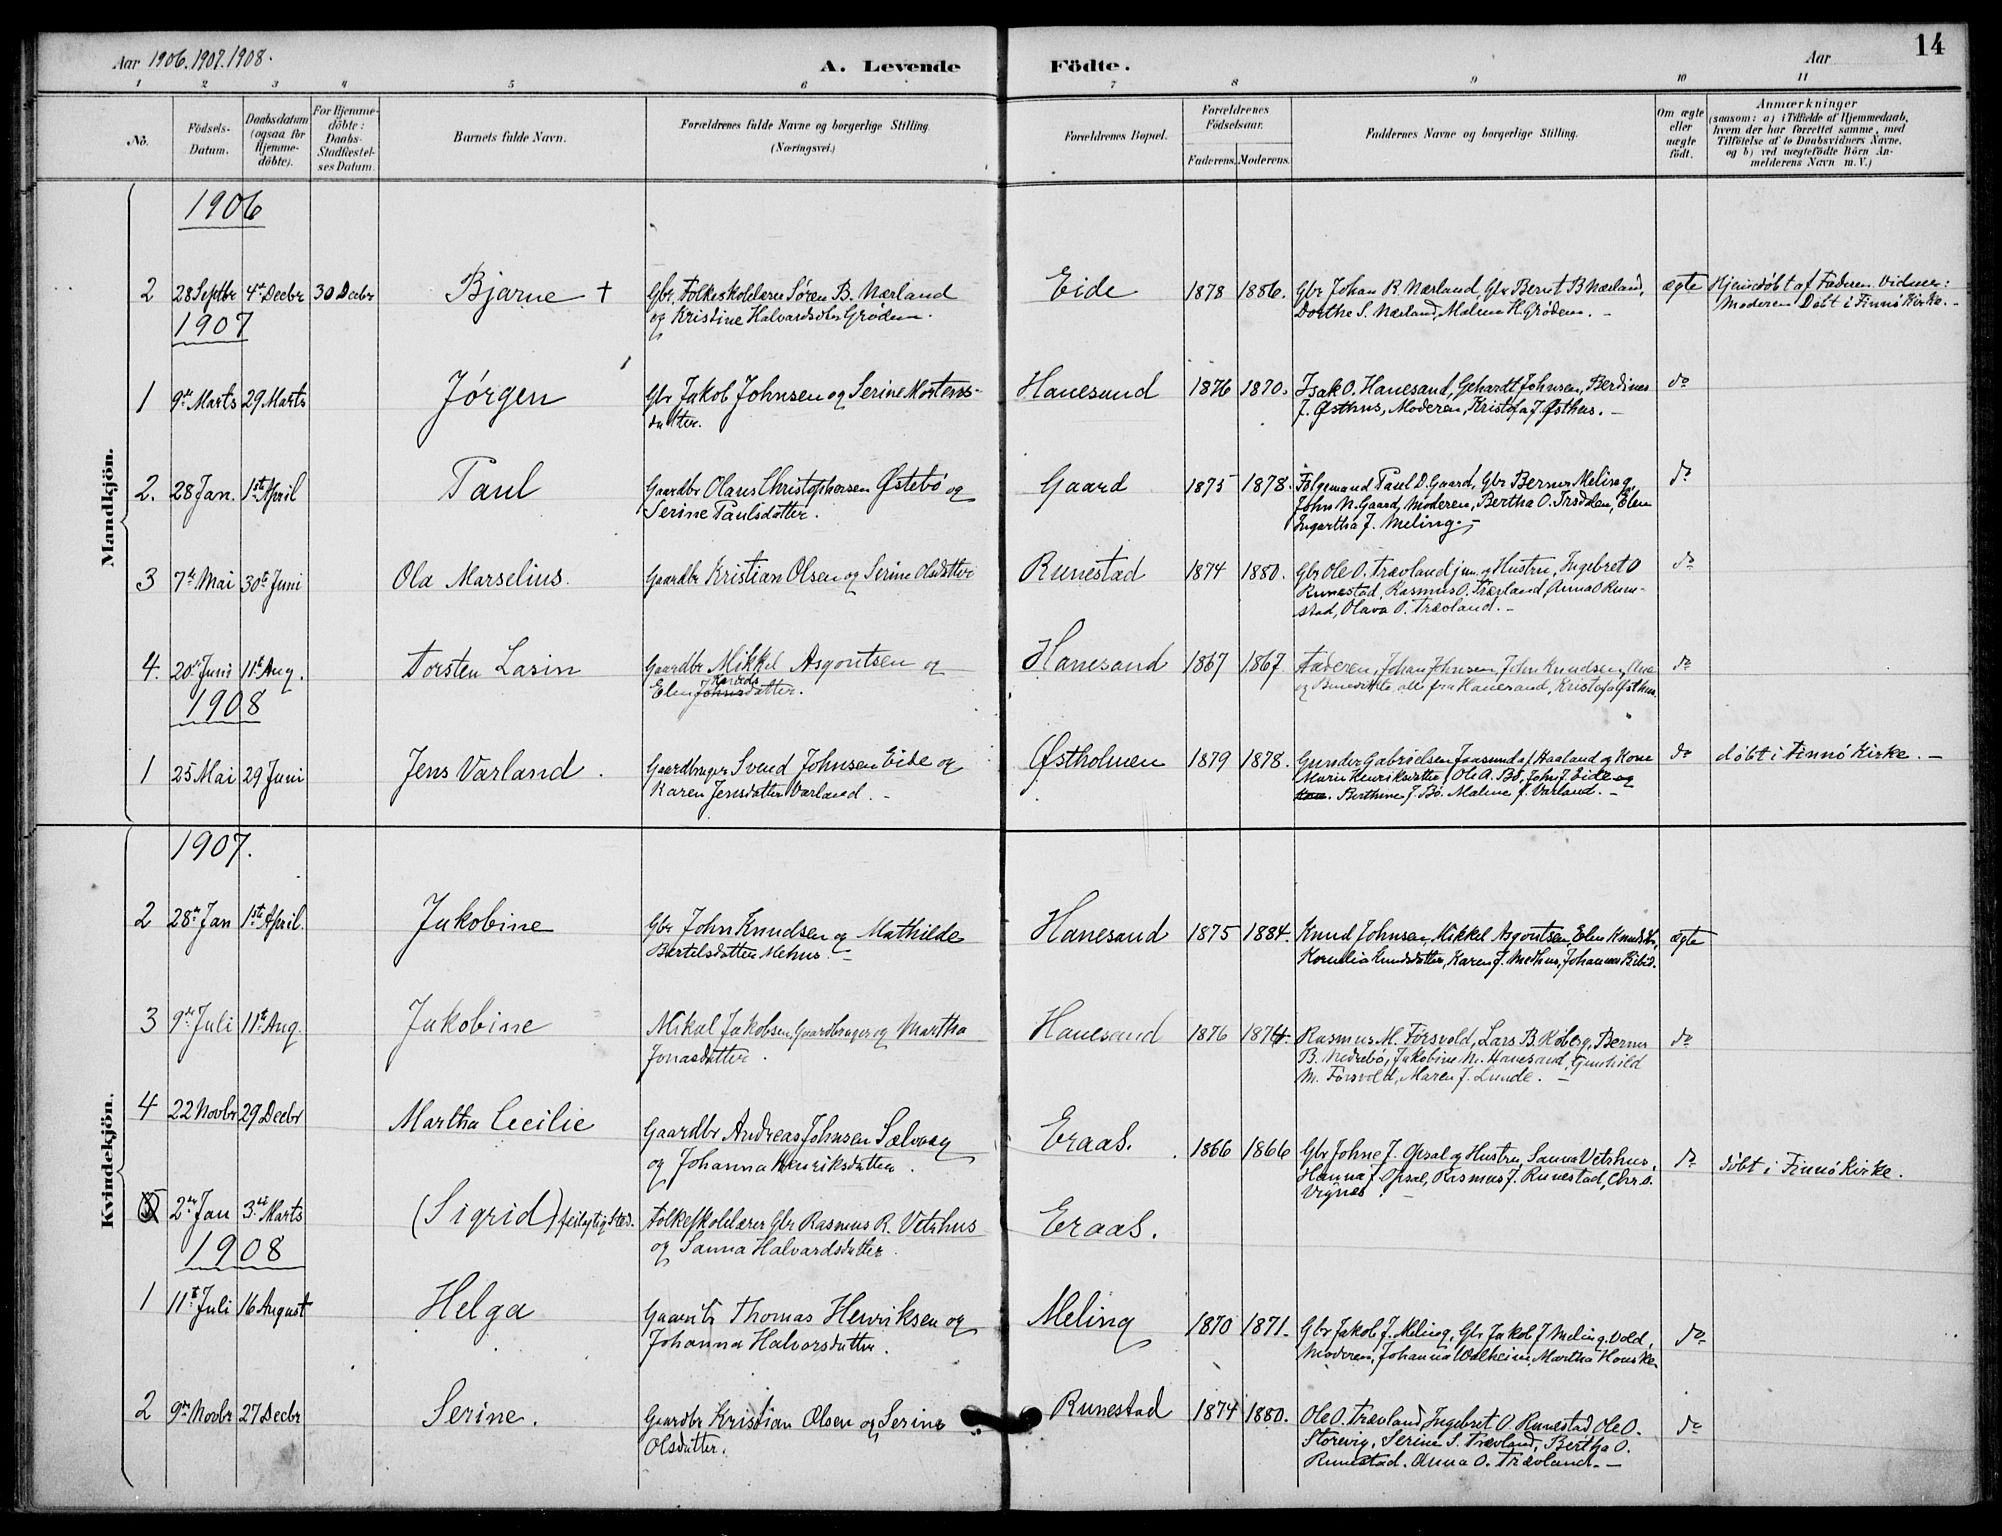 Aar 1906. 1907. 1908.
A. Levende Födte.
Aar
14
1 2 3 4 5 6 7 8 9 10 11
No.
Födsels-Datum.
Daabsdatum (ogsaa for Hjemme-döbte).
For Hjemme-döbte: Daabs-Stadfæstel-ses Datum.
Barnets fulde Navn.
Forældrenes fulde Navne og borgerlige Stilling.
(Næringsvei.)
Forældrenes Bopæl.
Forældrenes Födselsaar.
Faderens. Moderens.
Faddernes Navne og borgerlige Stilling.
Om ægte eller uægte födt.
Anmærkninger
(saasom: a) i Tilfælde af Hjemmedaab,
hvem der har forrettet samme, med
Tilföielse af to Daabsvidners Navne,
og b) ved uægtefödte Börn An-
melderens Navn m. V.)
Mandkjön.
1906
2 28 Septbr 4de Decbr 30 Decbr Bjarne + Gbr. Folkeskolelærer Søren B. Nærland Eide 1878 1886. Gbr Johan R. Nærland, Gbr Bernt B Nærland, ægte Hjemdøbt af Faderen. Vidner:
og Kristine Halvardsdtr Grødem. Dorthe S. Nærland, Malene H. Grødem. - Moderen Døbt i Finnø Kirke. -
1907
1 9de Marts 29 Marts Jørgen Gbr Jakob Johnsen og Serine Mortens- Hanesand 1876 1870. Isak O. Hanesand, Gehardt Johnsen, Berdines do
datter. J. Østhus, Moderen, Kristofa J. Østhus. -
2. 28 Jan. 1ste April Paul Gaardbr Olaus Christophersen Østebö og Gaard 1875 1878. Følgemand Paul D. Gaard, Gbr Berner Meling, do
Serine Paulsdatter. John N. Gaard, Moderen, Bertha O. , Elen
Ingartha J. Meling. -
3 7de Mai 30te Juni Ola Marselius. Gaardbr Kristian Olsen og Serine Olsdatter Runestad 1874 1880. Gbr Ole O. Trævland jun. og Hustru, Ingebret O do
Runestad, Rasmus O. Trævland, Anna O Rune-
stad, Olava O. Trævland. -
4. 20de Juni 11te Aug. Torsten Lasin Gaardbr Mikkel Asgoutsen og Hanesand 1867 1867. Faderen, Johan Johnsen, John Knudsen, do
Elen Johnsdatter. og alle fra Hanesand, Kristofa Østhus.
1908
1 25 Mai 29 Juni Jens Varland. Gaardbruger Svend Johnsen Eide og Østholmen 1879 1878. Gunder Gabrielsen Faasund af Haaland og Kone do døbt i Finnø Kirke. -
Karen Jensdatter Varland. - Marie Henriksdatter, Ole A. Bö, John J. Eide og
Kone. Berthine J. Bö. Malene J. Varland. -
Kvindekjön.
1907.
2 28de Jan 1ste April. Jakobine Gbr John Knudsen og Mathilde Hanesand 1875 1884. Knud Johnsen, Mikkel Asgoutsen, Elen Knudsdtr, ægte
Bertelsdatter Mehus. - Kornelia Knudsdatter, Karen J. Mehus, Johannes
3 9de Juli 11te Aug. Jakobine Mikal Jakobsen, Gaardbruger og Martha Hanesand 1876 1874. Rasmus M. Førsvold, Lars B. Roberg, Berner do
Jonasdatter. B. Nedrebö, Jakobine M. Hanesand, Gunhild
M. Førsvold, Maren J. Lunde. -
4 22 Novbr 29 Decbr Martha Cecilie Gaardbr Andreas Johnsen Selvaag Eraas. 1866 1866 Gbr Johne J. Opsal og Hustru, Sanna Vetrhus, do døbt i Finnö Kirke.
og Johanna Henriksdatter. Hanna J Opsal, Rasmus J. Runestad, Chr. O.
Vignes.
5 2den Jan 3die Marts (Sigrid) feilagtig Sted. Folkeskolelærer Gbr Rasmus R. Vetrhus Eraas.
og Sanna Halvardsdatter.
1908
1 11te Juli 16 August Helga Gaardbr Thomas Henriksen og Meling 1870 1871. Gbr Jakob J. Meling, Gbr Jakob J Meling Vold, do
Johanna Halvorsdatter. Moderen, Johanna Valheim, Martha
2 9de Novbr 27 Decbr Serine. Gaardbr Kristian Olsen og Serine Runestad 1874 1880. Ole O. Trævland, Ingebret O. Runestad Ole O. do
Olsdatter. Storevig. Serine S. Trævland, Bertha O.
Runestad. Anna O. Trævland. -